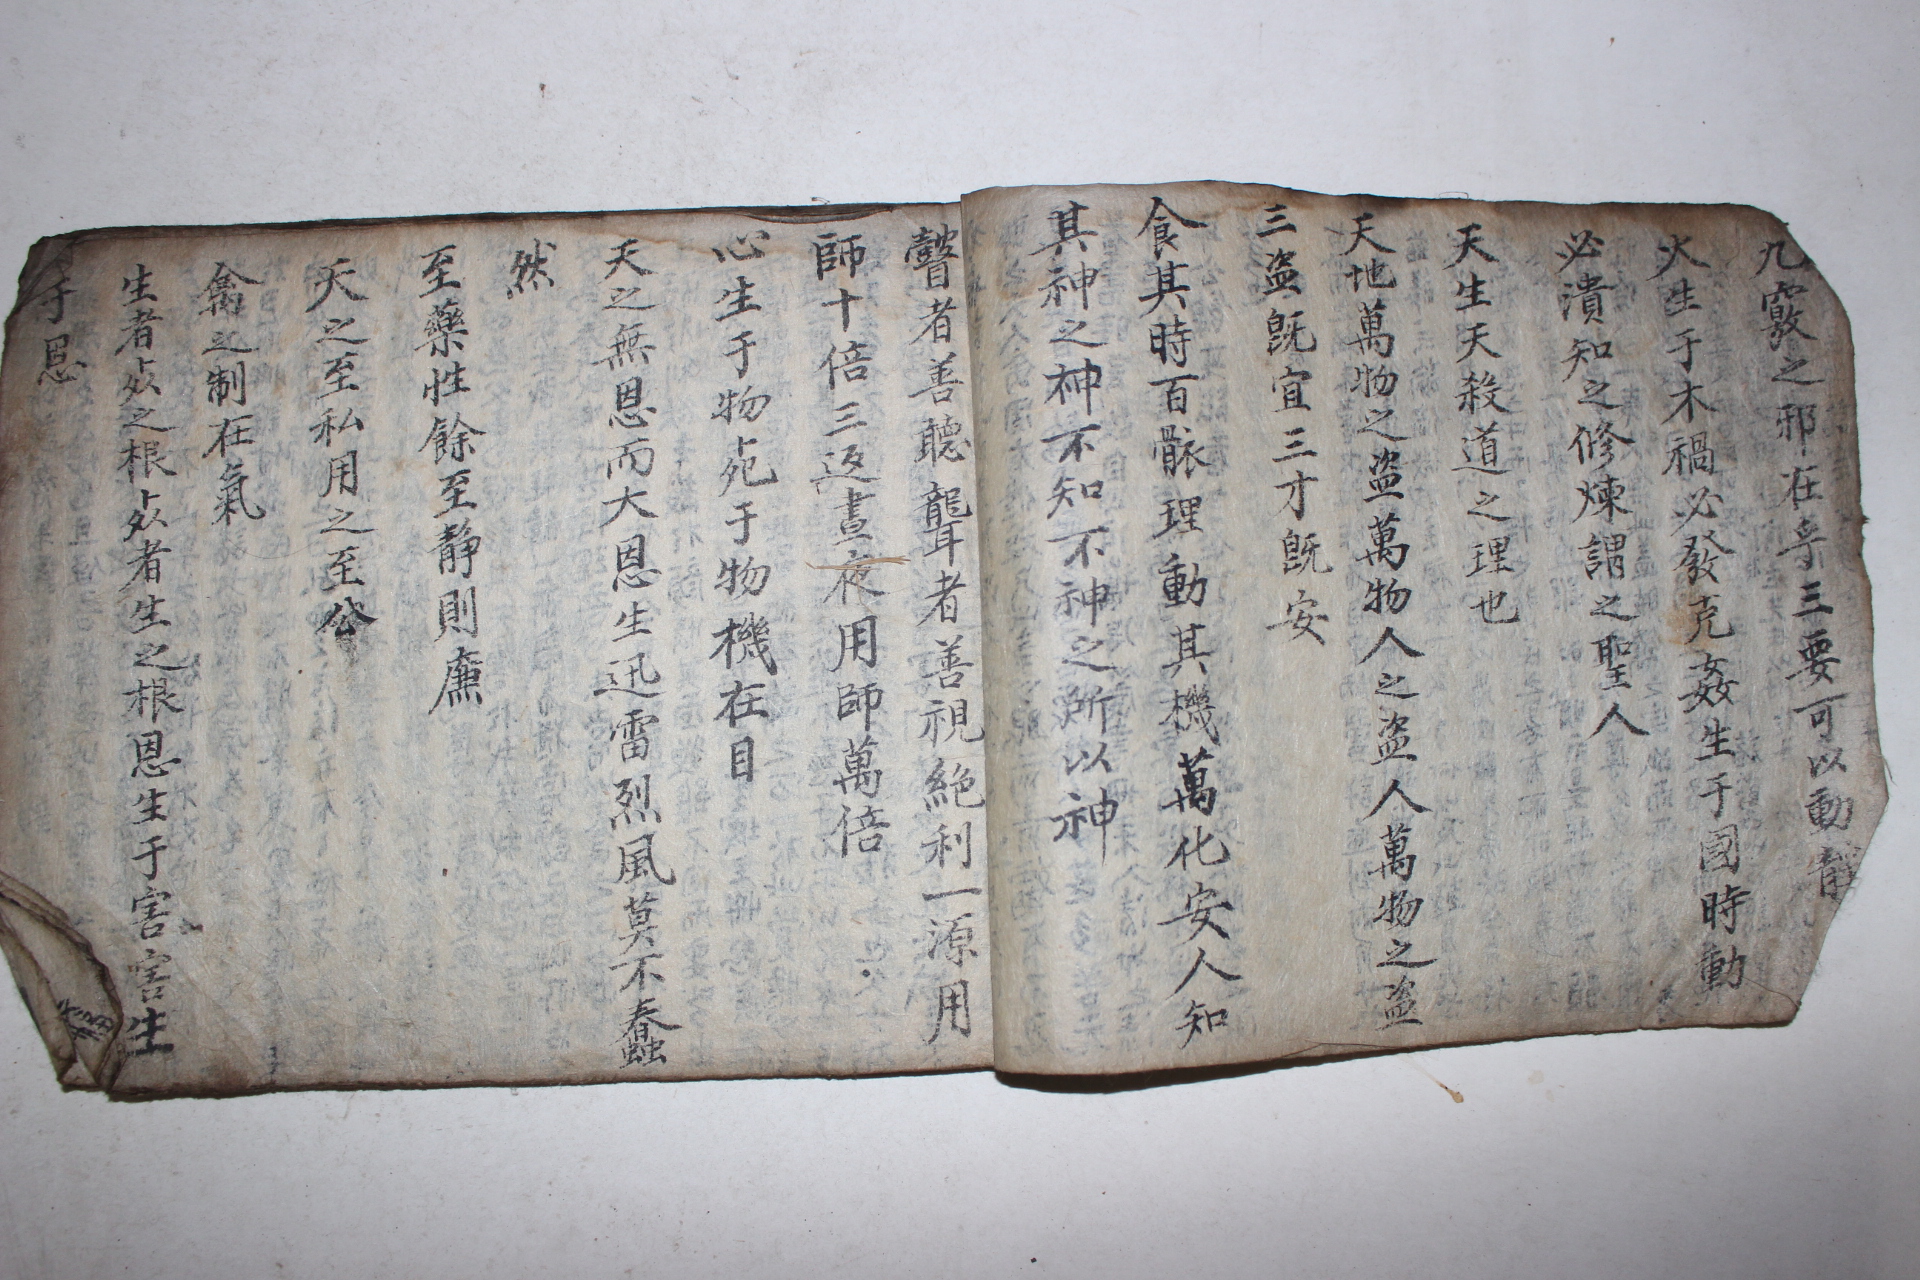 九竅之邪在乎三要可以動静
火生于木禍必發克姦生于國時動
必潰知之修煉謂之聖人
天生天殺道之理也
天地萬物之盗萬物人之盗人萬物之盗
三盗既宜三才既安
食其時百骸理動其機萬化安人知
其神之神不知不神之所以神
瞽者善聽聾者善視絶利一源用
師十倍三返晝夜用師萬倍
心生于物死于物機在目
天之無恩而大恩生迅雷烈風莫不蠢
然
至藥性餘至静則廉
天之至私用之至公
禽之制在氣
生者死之根死者生之根恩生于害害生
于恩